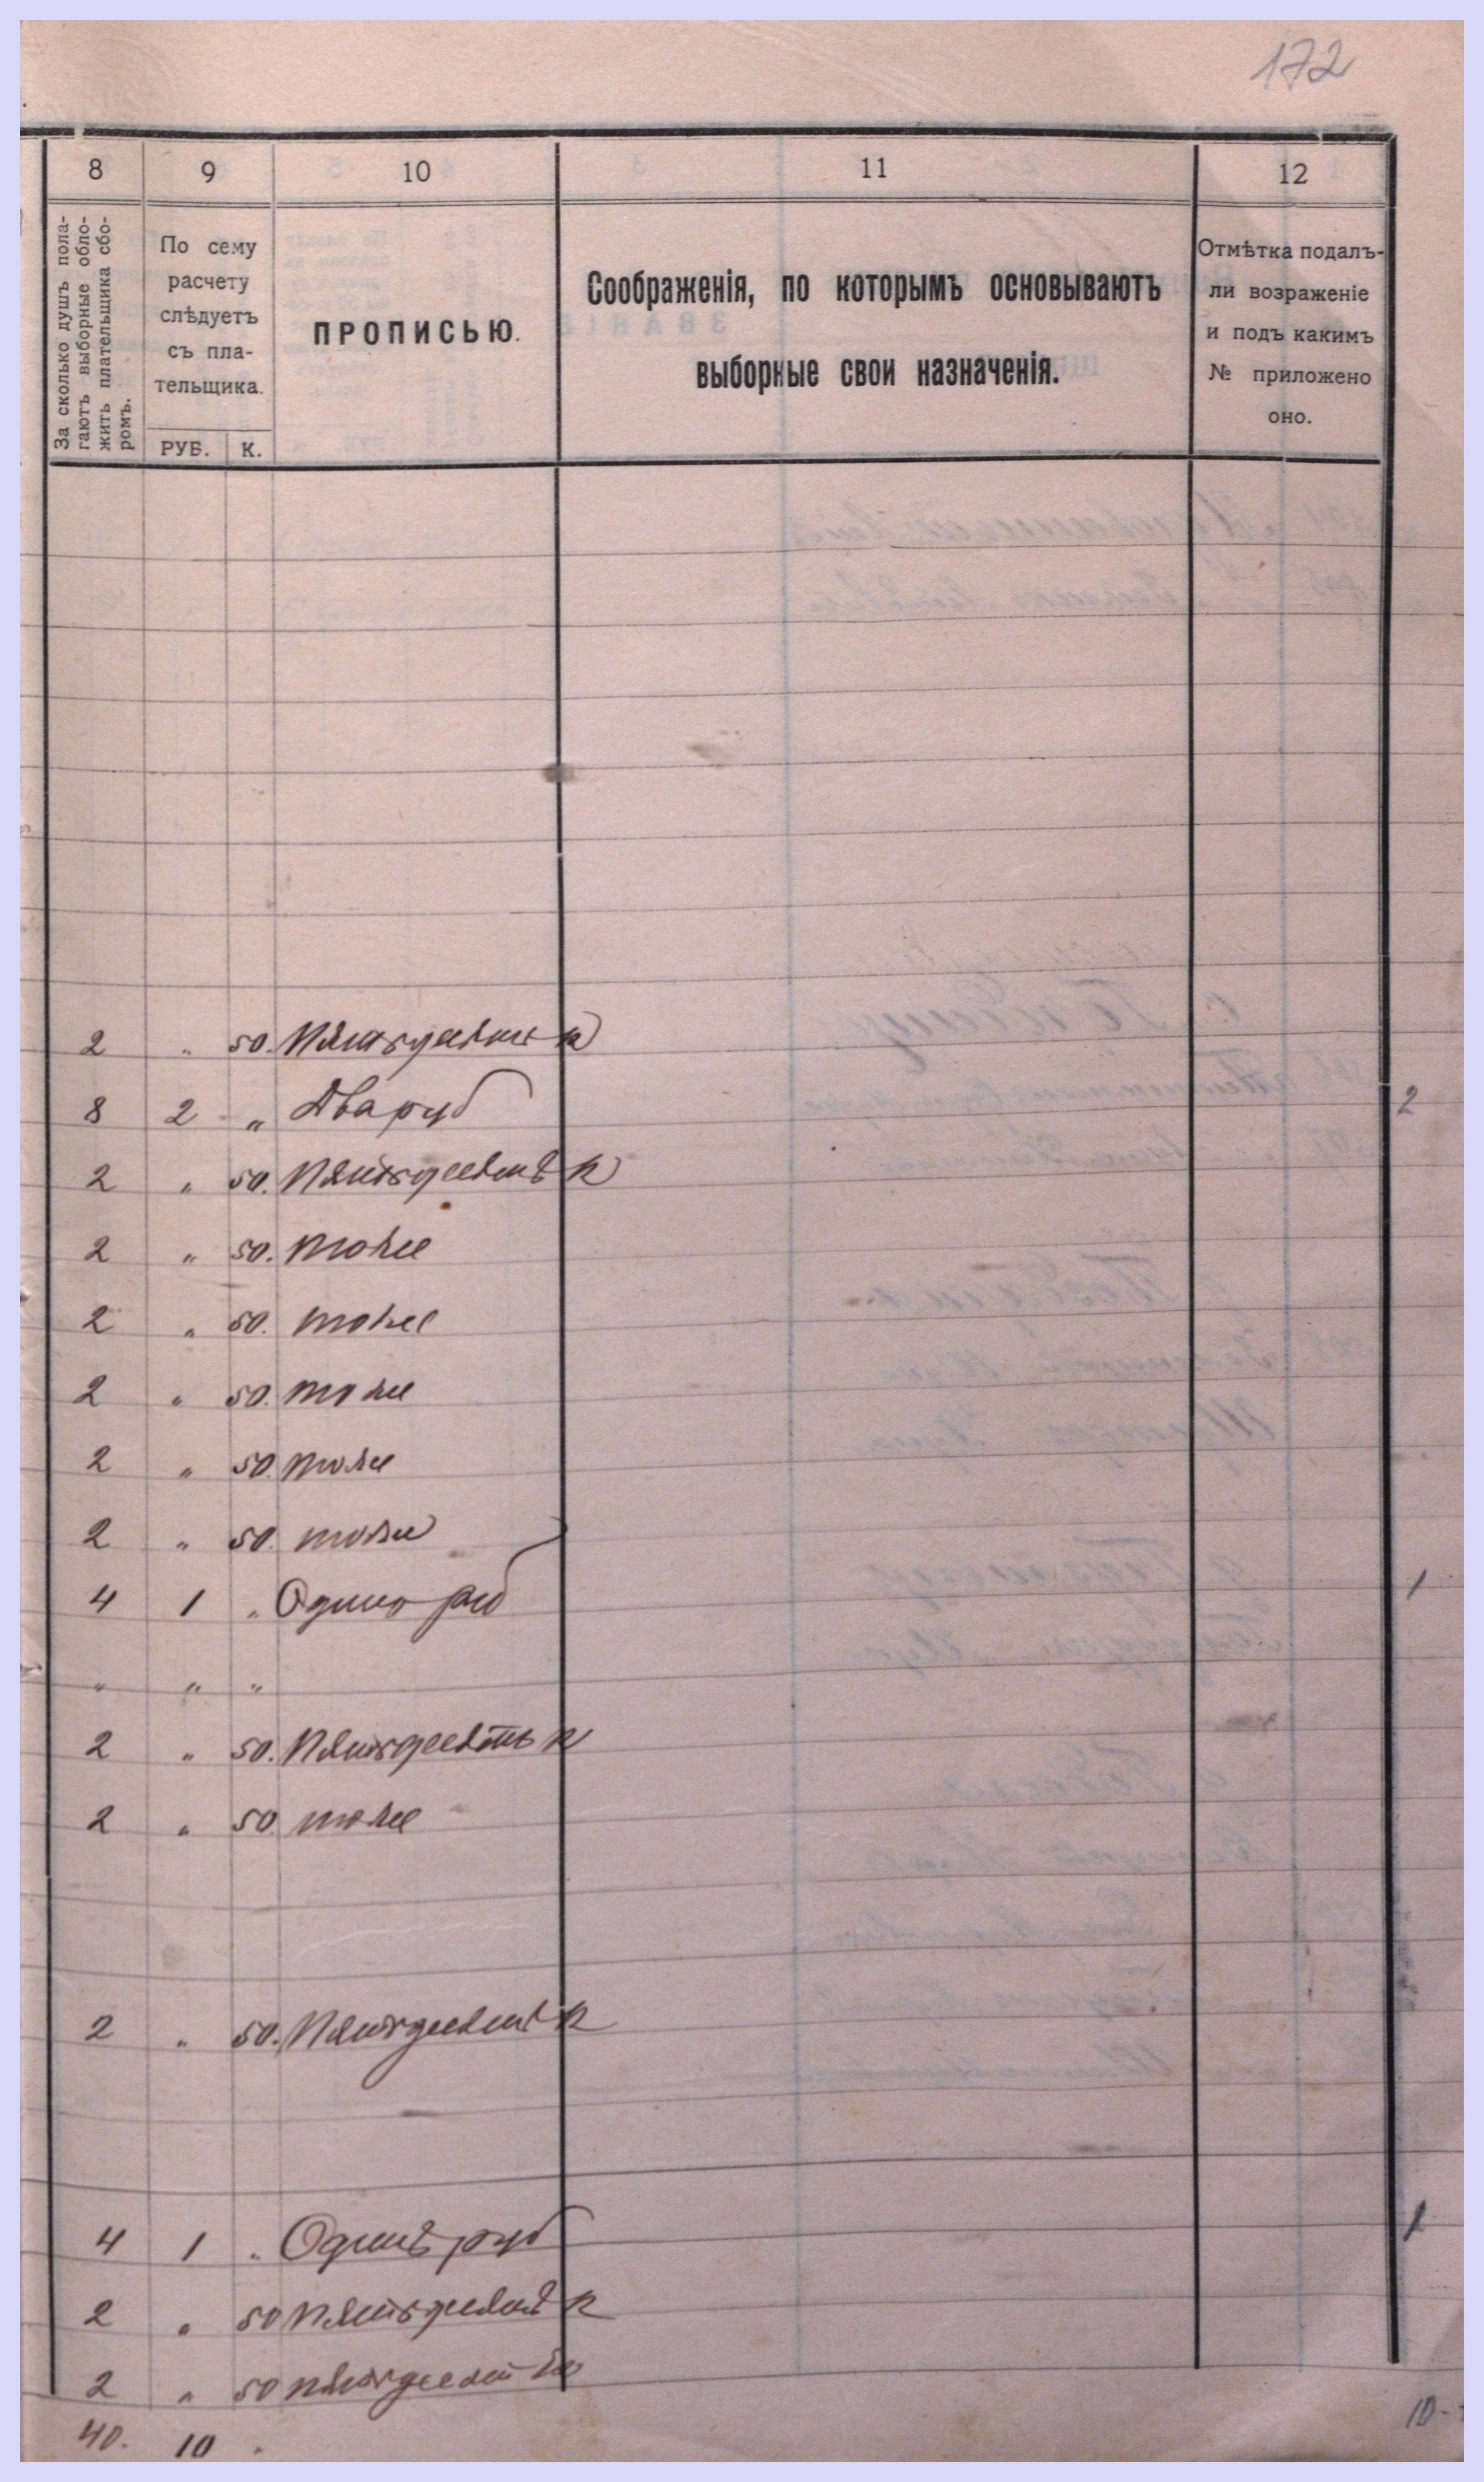 172
8 9 10 11 12
За сколько душъ пола-
гаютъ выборные обло-
жить плательщика сбо-
ромъ.
По сему
расчету
слѣдуетъ
съ пла-
тельщика.
РУБ. К.
ПРОПИСЬЮ.
Соображенія, по которымъ основываютъ
выборные свои назначенія.
Отмѣтка подалъ-
ли возраженіе
и подъ какимъ
№ приложено
оно.
2 " 50. Пятьдесятъ к
8 2 " Два руб 2
2 " 50. Пятьдесятъ к
2 " 50. тоже
2 " 50. тоже
2 " 50. тоже
2 " 50. тоже
2 " 50. тоже
4 1 " Одинъ руб 1
" " "
2 " 50. Пятьдесятъ к
2 " 50. тоже
2 " 50. Пятьдесятъ к
4 1 " Одинъ руб 1
2 " 50 Пятьдесятъ к
2 " 50 пятьдесят
40. 10 " 10 -